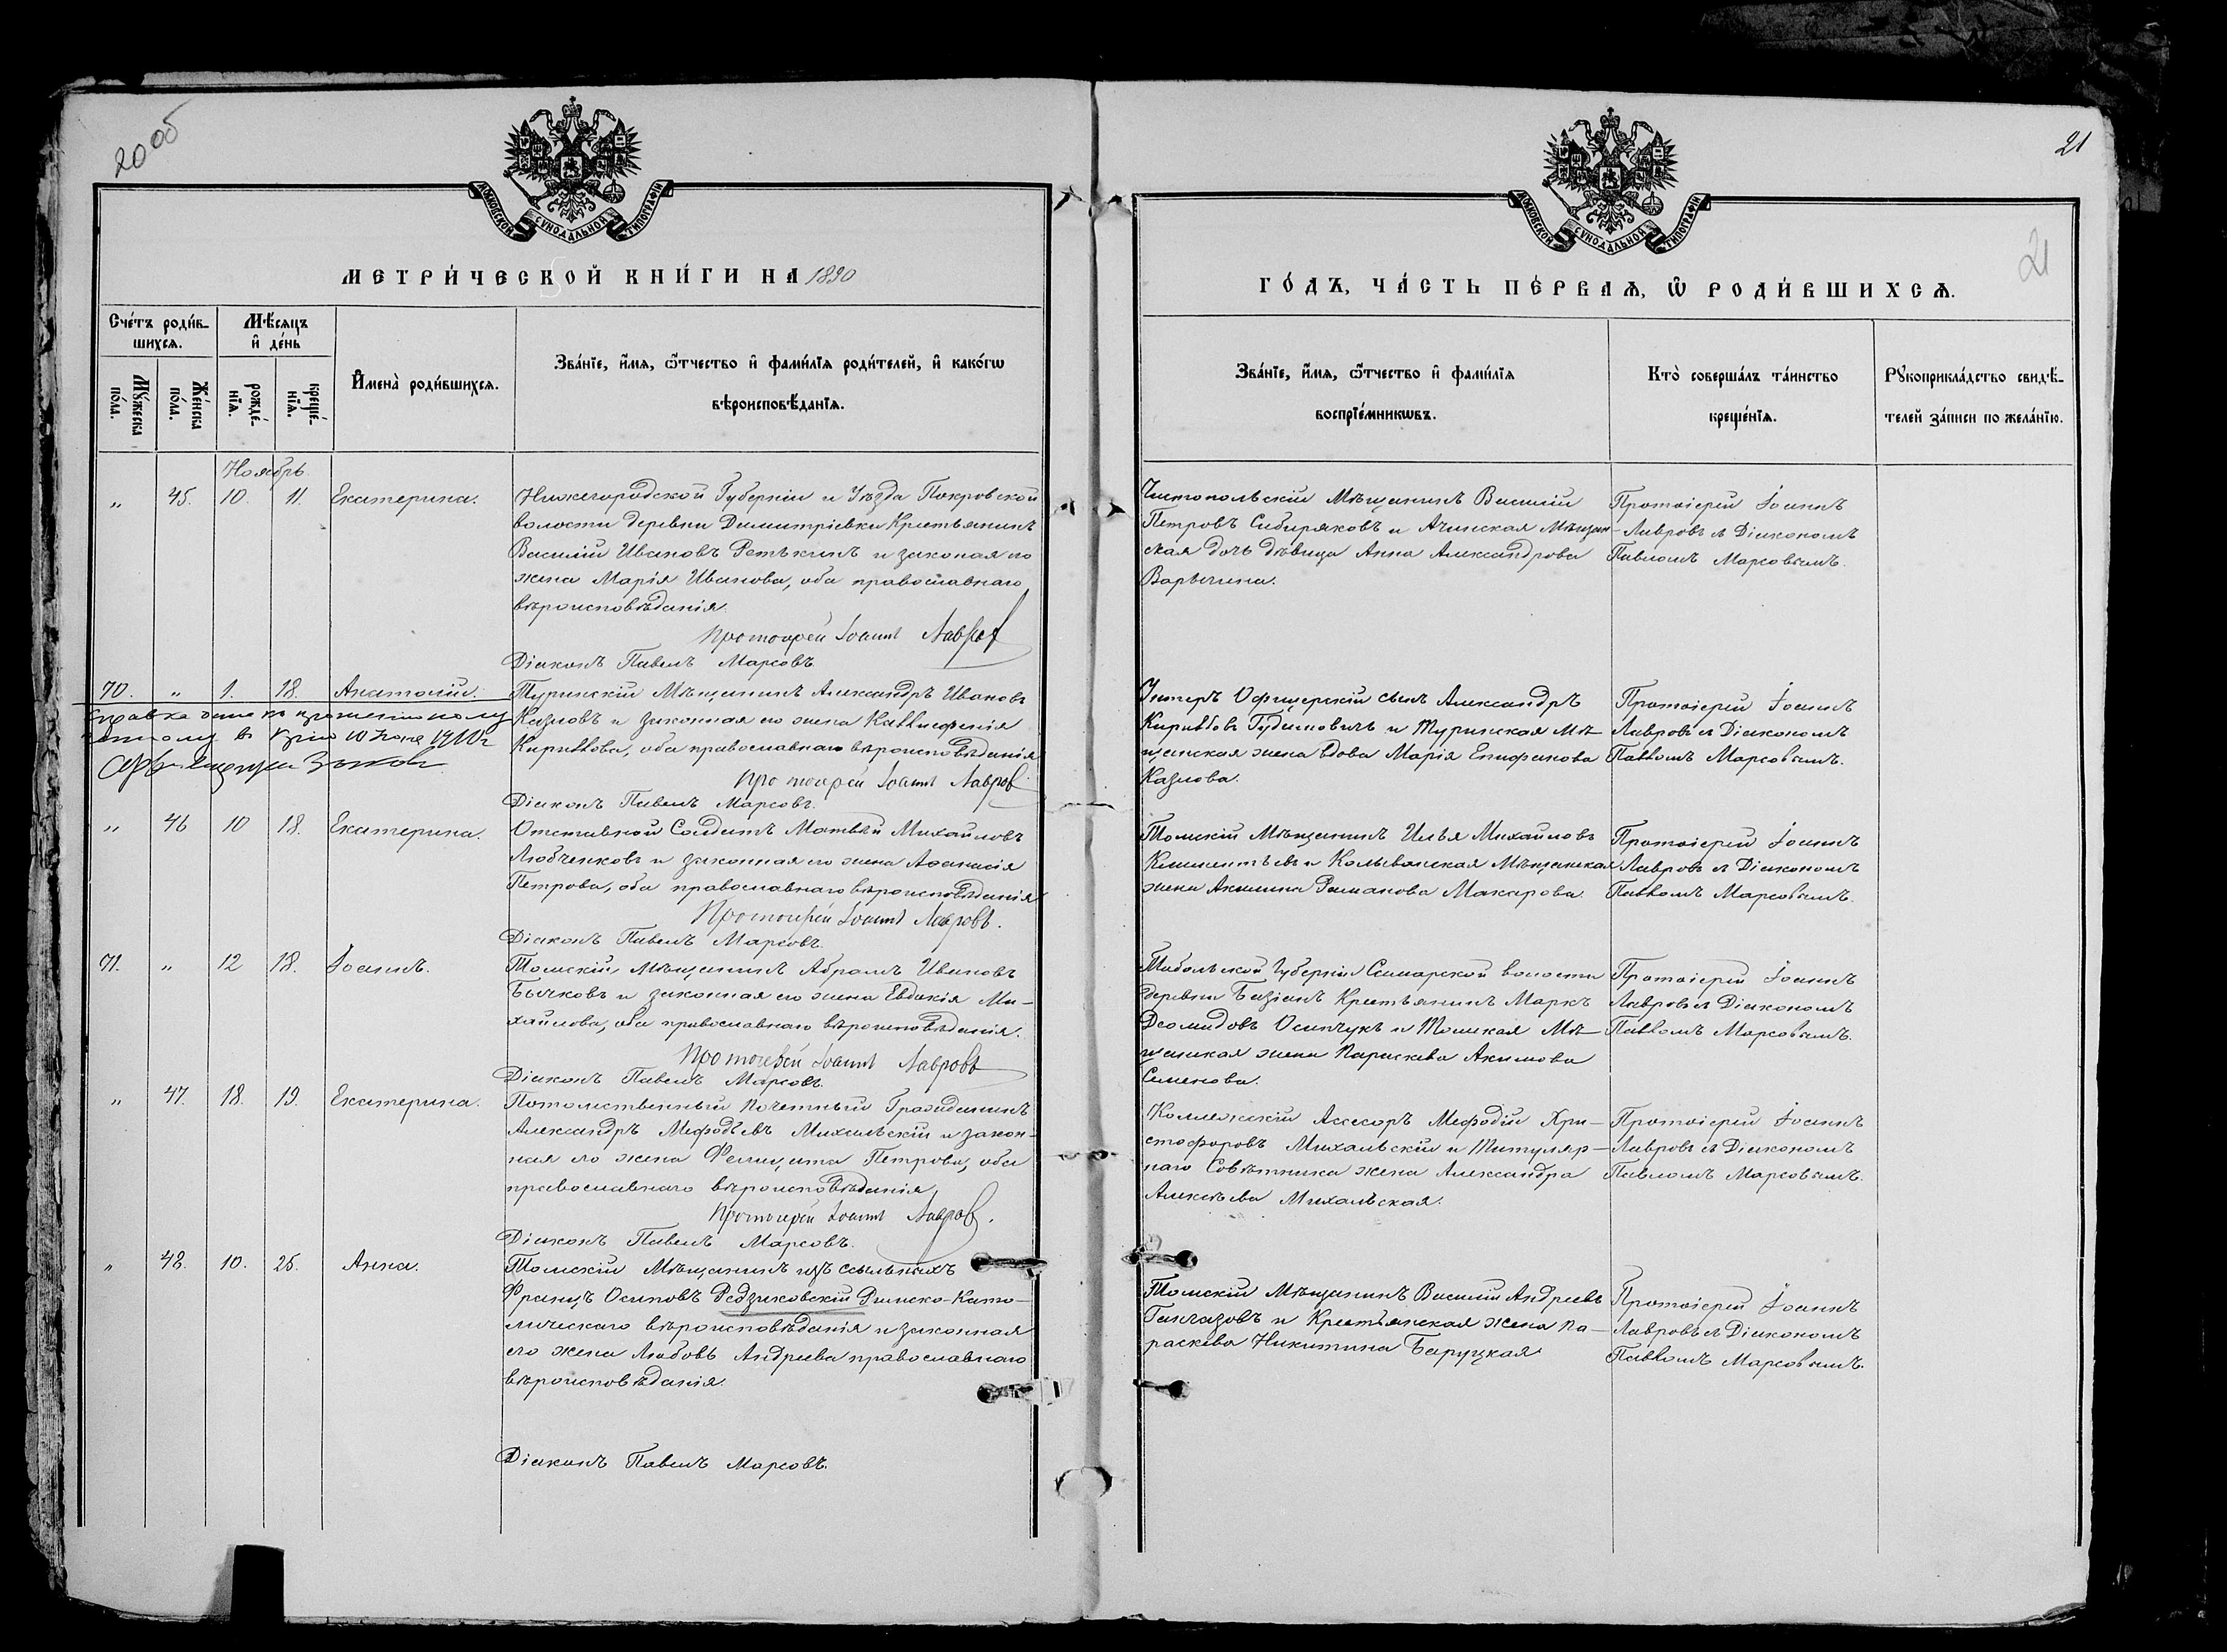 20 об
МОСКОВСКОЙ СѴНОДАЛЬНОЙ ТИПОГРАФІИ
МЕТРИ́ЧЕСКОЙ КНИ́ГИ НА 1890
Сче́тъ роди́в-
шихсѧ.
Мѣ́сяцъ
и҆ де́нь
Мꙋ́жеска
по́ла.
Же́нска
по́ла.
рожде́-
нїѧ.
креще́-
нїѧ.
И҆мена̀ роди́вшихсѧ.
Зва́нїе, и҆́мѧ, ѻ҆́тчество и҆ фами́лїѧ роди́телей, и҆ како́гѡ
вѣроисповѣ́данїѧ.
Ноябрь.
„ 45. 10. 11. Екатерина.
Нижегородской Губерніи и Уѣзда Покровской
волости деревни Димитріевки Крестьянинъ
Василій Ивановъ Ретькинъ и законая его
жена Марія Иванова, оба православнаго
вѣроисповѣданія.
Протоіерей Іоаннъ Лавровъ
Діаконъ Павелъ Марсовъ.
70. „ 1. 18. Анатолій.
Туринскій Мѣщанинъ Александръ Ивановъ
Казловъ и законная его жена Каллисфенія
Кириллова, оба православнаго вѣроисповѣданія
Справка дана по прошенію
10 1910 г
Протоіерей Іоаннъ Лавровъ
Діаконъ Павелъ Марсовъ.
„ 46 10 18. Екатерина.
Отставной Солдатъ Матвѣй Михайловъ
Любченковъ и законная его жена Афанасія
Петрова, оба православнаго вѣроисповѣданія
Протоіерей Іоаннъ Лавровъ.
Діаконъ Павелъ Марсовъ.
71. „ 12 18. Іоаннъ.
Томскій Мѣщанинъ Абрамъ Ивановъ
Бычковъ и законная его жена Евдокія Ми-
хайлова, оба православнаго вѣроисповѣданія.
Протоіерей Іоаннъ Лавровъ
Діаконъ Павелъ Марсовъ.
„ 47. 18. 19. Екатерина.
Потомственный Почетный Гражданинъ
Александръ Мефодьевъ Михальскій и закон-
ная его жена Фелицата Петрова, оба
православнаго вѣроисповѣданія
Протоіерей Іоаннъ Лавровъ.
Діаконъ Павелъ Марсовъ.
„ 48. 10. 25. Анна.
Томскій Мѣщанинъ изъ ссыльныхъ
Францъ Осиповъ Редзиковскій Римско-Като-
лическаго вѣроисповѣданія и законная
его жена Любовь Андреева православнаго
вѣроисповѣданія.
Діаконъ Павелъ Марсовъ.
21
21
МОСКОВСКОЙ СѴНОДАЛЬНОЙ ТИПОГРАФІИ
ГО́ДЪ, ЧА́СТЬ ПЕ́РВАѦ, Ѡ҆ РОДИ́ВШИХСѦ.
Зва́нїе, и҆́мѧ, ѻ҆́тчество и҆ фами́лїѧ
воспрїе́мникѡвъ.
Кто̀ соверша́лъ та́инство
креще́нїѧ.
Рꙋкоприкла́дство свидѣ́-
телей за́писи по жела́нїю.
Чистопольскій Мѣщанинъ Василій
Петровъ Сибиряковъ и Ачинская Мѣщан-
ская дочь дѣвица Анна Александрова
Варыгина.
Протоіерей Іоаннъ
Лавровъ съ Діакономъ
Павломъ Марсовымъ.
Унтеръ Офицерскій сынъ Александръ
Кирилловъ Гудимовичъ и Туринская Мѣ-
щанская жена вдова Марія Епифанова
Казлова.
Протоіерей Іоаннъ
Лавровъ съ Діакономъ
Павломъ Марсовымъ.
Томскій Мѣщанинъ Илья Михайловъ
Климентьевъ и Колыванская Мѣщанская
жена Акилина Романова Макарова.
Протоіерей Іоаннъ
Лавровъ съ Діакономъ
Павломъ Марсовымъ.
Тобольской Губерніи Самарской волости
деревни Базіанъ Крестьянинъ Маркъ
Деомидовъ Осипчукъ и Томская Мѣ-
щанская жена Параскева Акимова
Семенова.
Протоіерей Іоаннъ
Лавровъ съ Діакономъ
Павломъ Марсовымъ.
Коллежскій Ассесоръ Мефодій Хри-
стофоровъ Михальскій и Титуляр-
наго Совѣтника жена Александра
Алексѣева Михальская.
Протоіерей Іоаннъ
Лавровъ съ Діакономъ
Павломъ Марсовымъ.
Томскій Мѣщанинъ Василій Андреевъ
Ганчазовъ и Крестьянская жена Па-
раскева Никитина Баруцкая.
Протоіерей Іоаннъ
Лавровъ съ Діакономъ
Павломъ Марсовымъ.